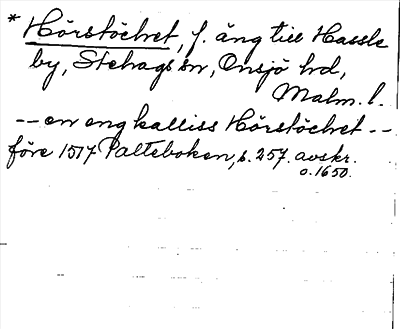 * Hörstöchet, f. äng till Hassle
by, Stehags sn, Onsjö hd,
Malm. l.
-- en eng kalliss Hörstöchet --
före 1517 Palteboken, s. 257. avskr.
o. 1650.